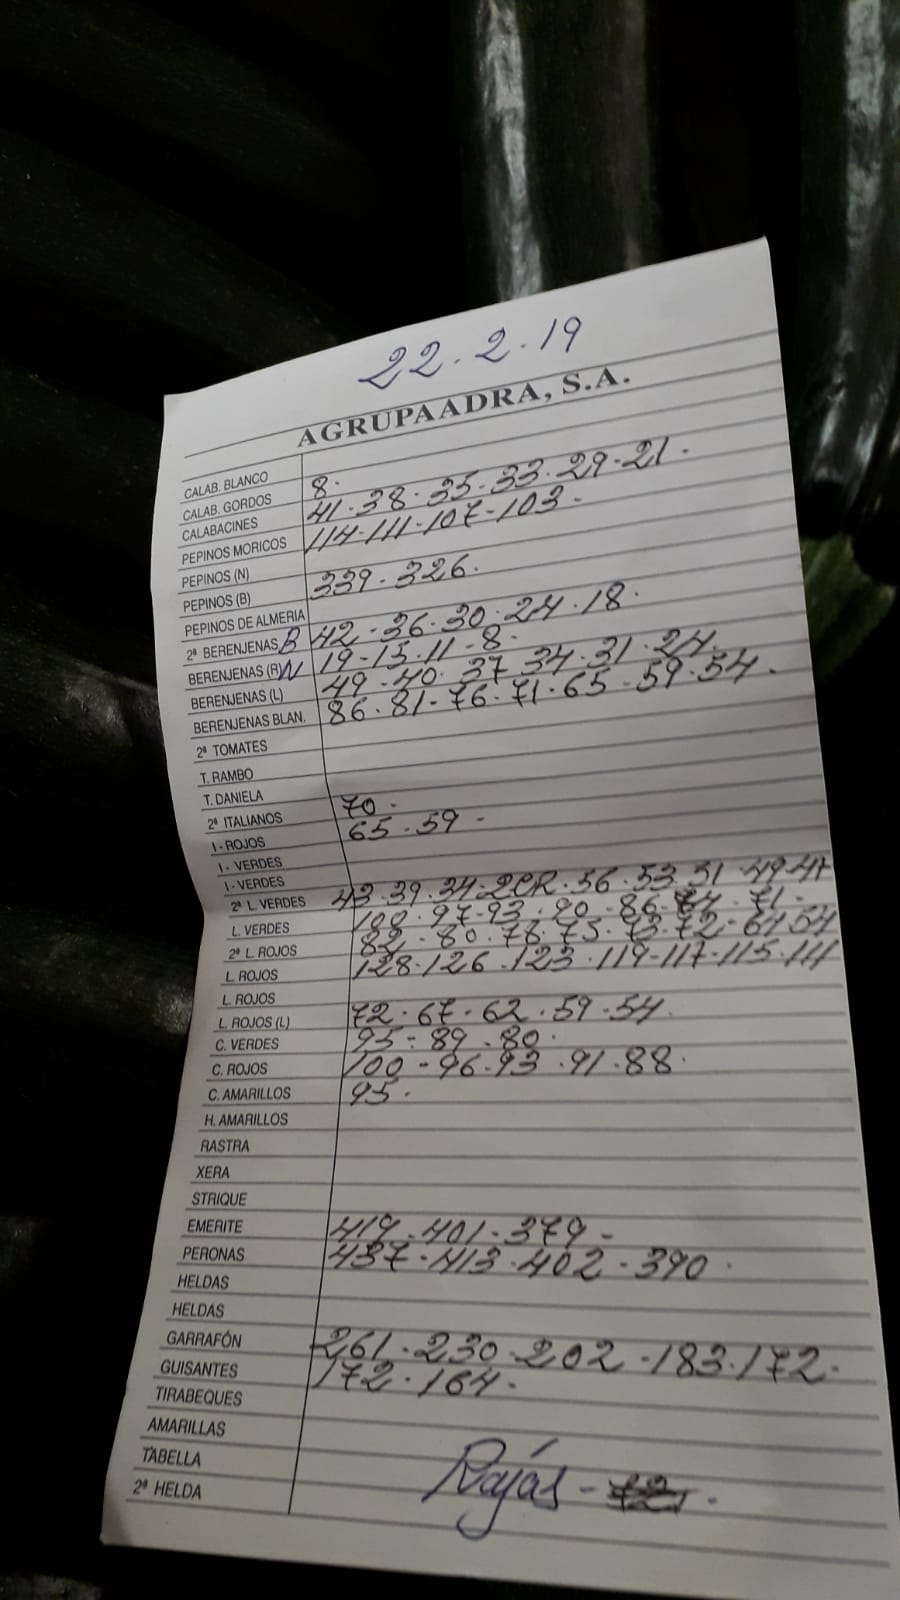 22.2.19
AGRUPAADRA, S.A.
CALAB. BLANCO
CALAB. GORDOS 8.
CALABACINES 41.38.35.33.29.21.
PEPINOS MORICOS 114-111-107-103.
PEPINOS (N)
PEPINOS (B) 339.326.
PEPINOS DE ALMERIA
2ª BERENJENAS B 42.36.30.24.18.
BERENJENAS (R) N 19-15.11.8.
BERENJENAS (L) 49-40.37 34.31.24.
BERENJENAS BLAN. 86.81-76.71.65.59.54.
2ª TOMATES
T. RAMBO
T. DANIELA
2ª ITALIANOS 70.
I - ROJOS 65.59-
I - VERDES
I - VERDES
2ª L. VERDES 43.39.34-2CR.56.53.51.49-47
L. VERDES 100.97-93.90-86- 71-
2ª L. ROJOS 82-80.78.75.73.72-64 54
L. ROJOS 128.126.123.119-117-115.111
L. ROJOS
L. ROJOS (L) 72.67-62.59-54.
C. VERDES 95-89.80.
C. ROJOS 100-96.93.91.88.
C. AMARILLOS 95.
H. AMARILLOS
RASTRA
XERA
STRIQUE
EMERITE 419.401.379-
PERONAS 437-413.402-390.
HELDAS
HELDAS
GARRAFÓN 261.230.202-183.172.
GUISANTES 172.164.
TIRABEQUES
AMARILLAS
TABELLA
2ª HELDA Rajás-